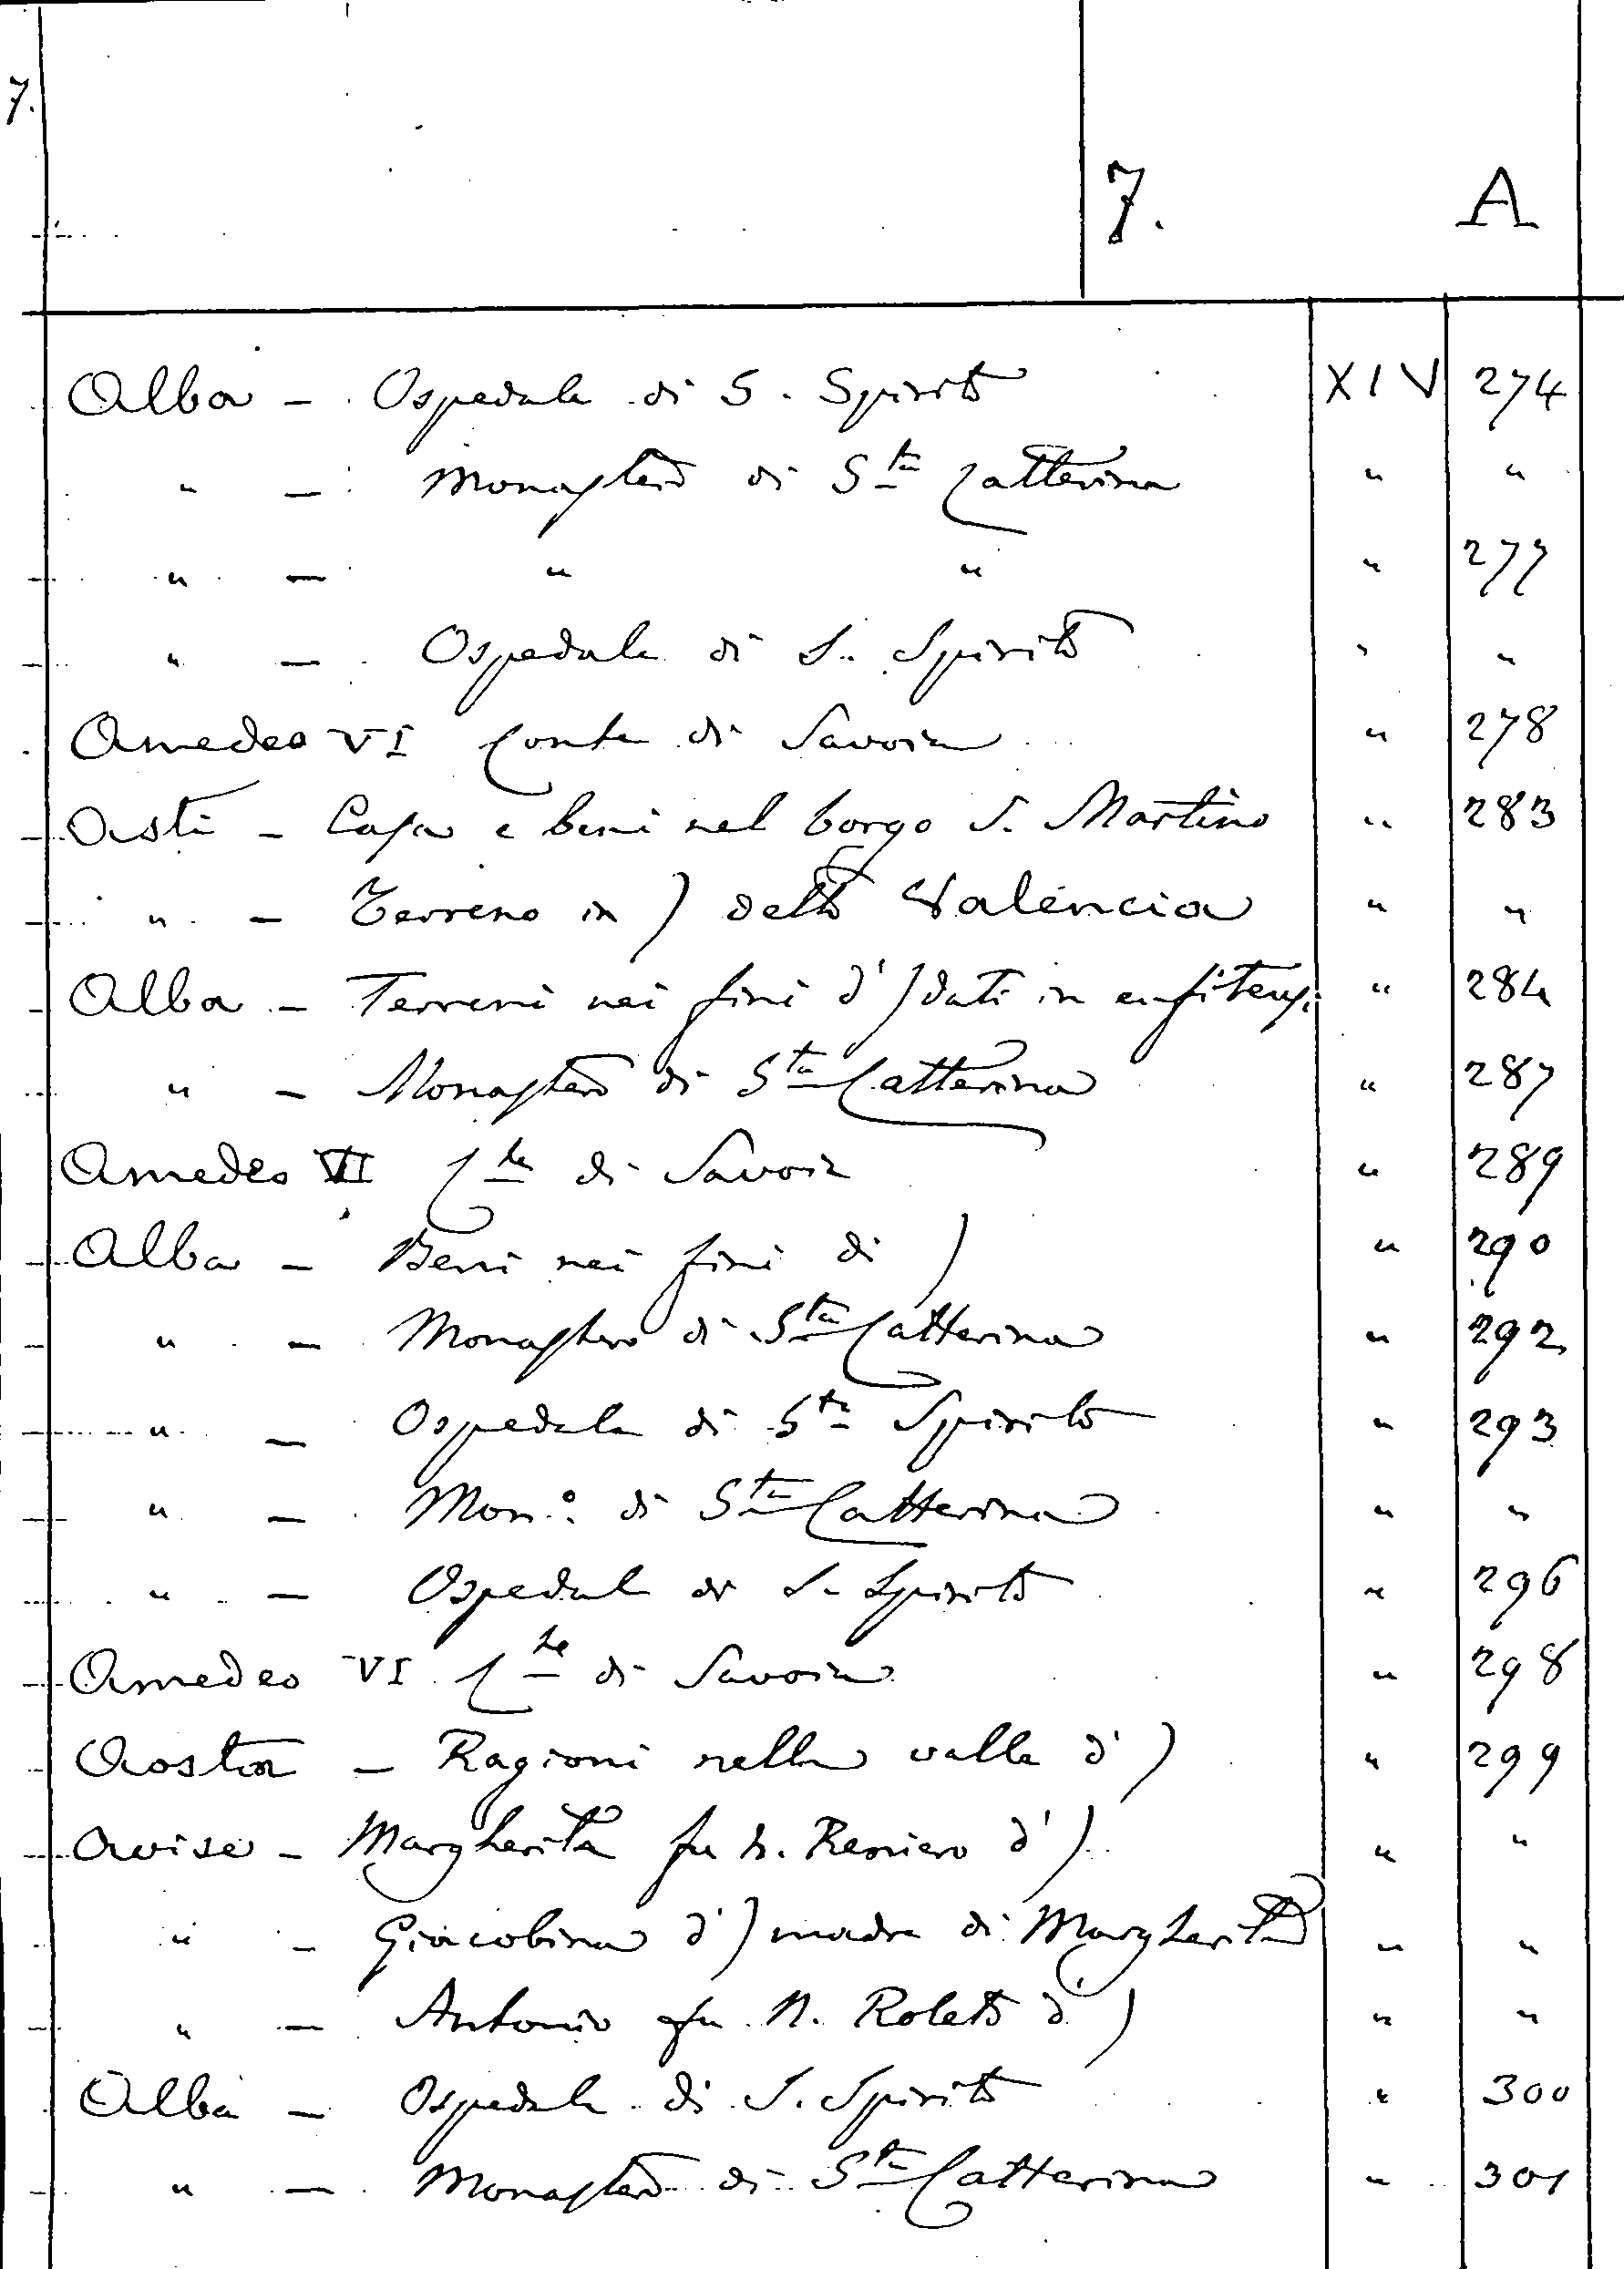 7.
7. A
Alba - Ospedale di S. Spirito XIV 274
" - Monastero di Sta Catterina " "
" - " " " 277
" - Ospedale di S. Spirito " "
Amedeo VI Conte di Savoia " 278
Asti - Casa e beni nel borgo S. Martino " 283
" - Terreno in ) detto Valencia " "
Alba - Terreni nei fini d' ) dati in enfiteusi " 284
" - Monastero di Sta Catterina " 287
Amedeo VII Cte di Savoia " 289
Alba - Beni nei fini di ) " 290
" - Monastero di Sta Catterina " 292
" - Ospedale di Sto Spirito " 293
" - Mon.o di Sta Catterina " "
" - Ospedale di S. Spirito " 296
Amedeo VI Cte di Savoia " 298
Aosta - Ragioni nella valle d' ) " 299
Avise - Margherita fu N. Reniero d' ) " "
" - Giacobina d' ) madre di Margherita " "
" - Antonio fu N. Roleto d' ) " "
Alba - Ospedale di S. Spirito " 300
" - Monastero di Sta Catterina " 301